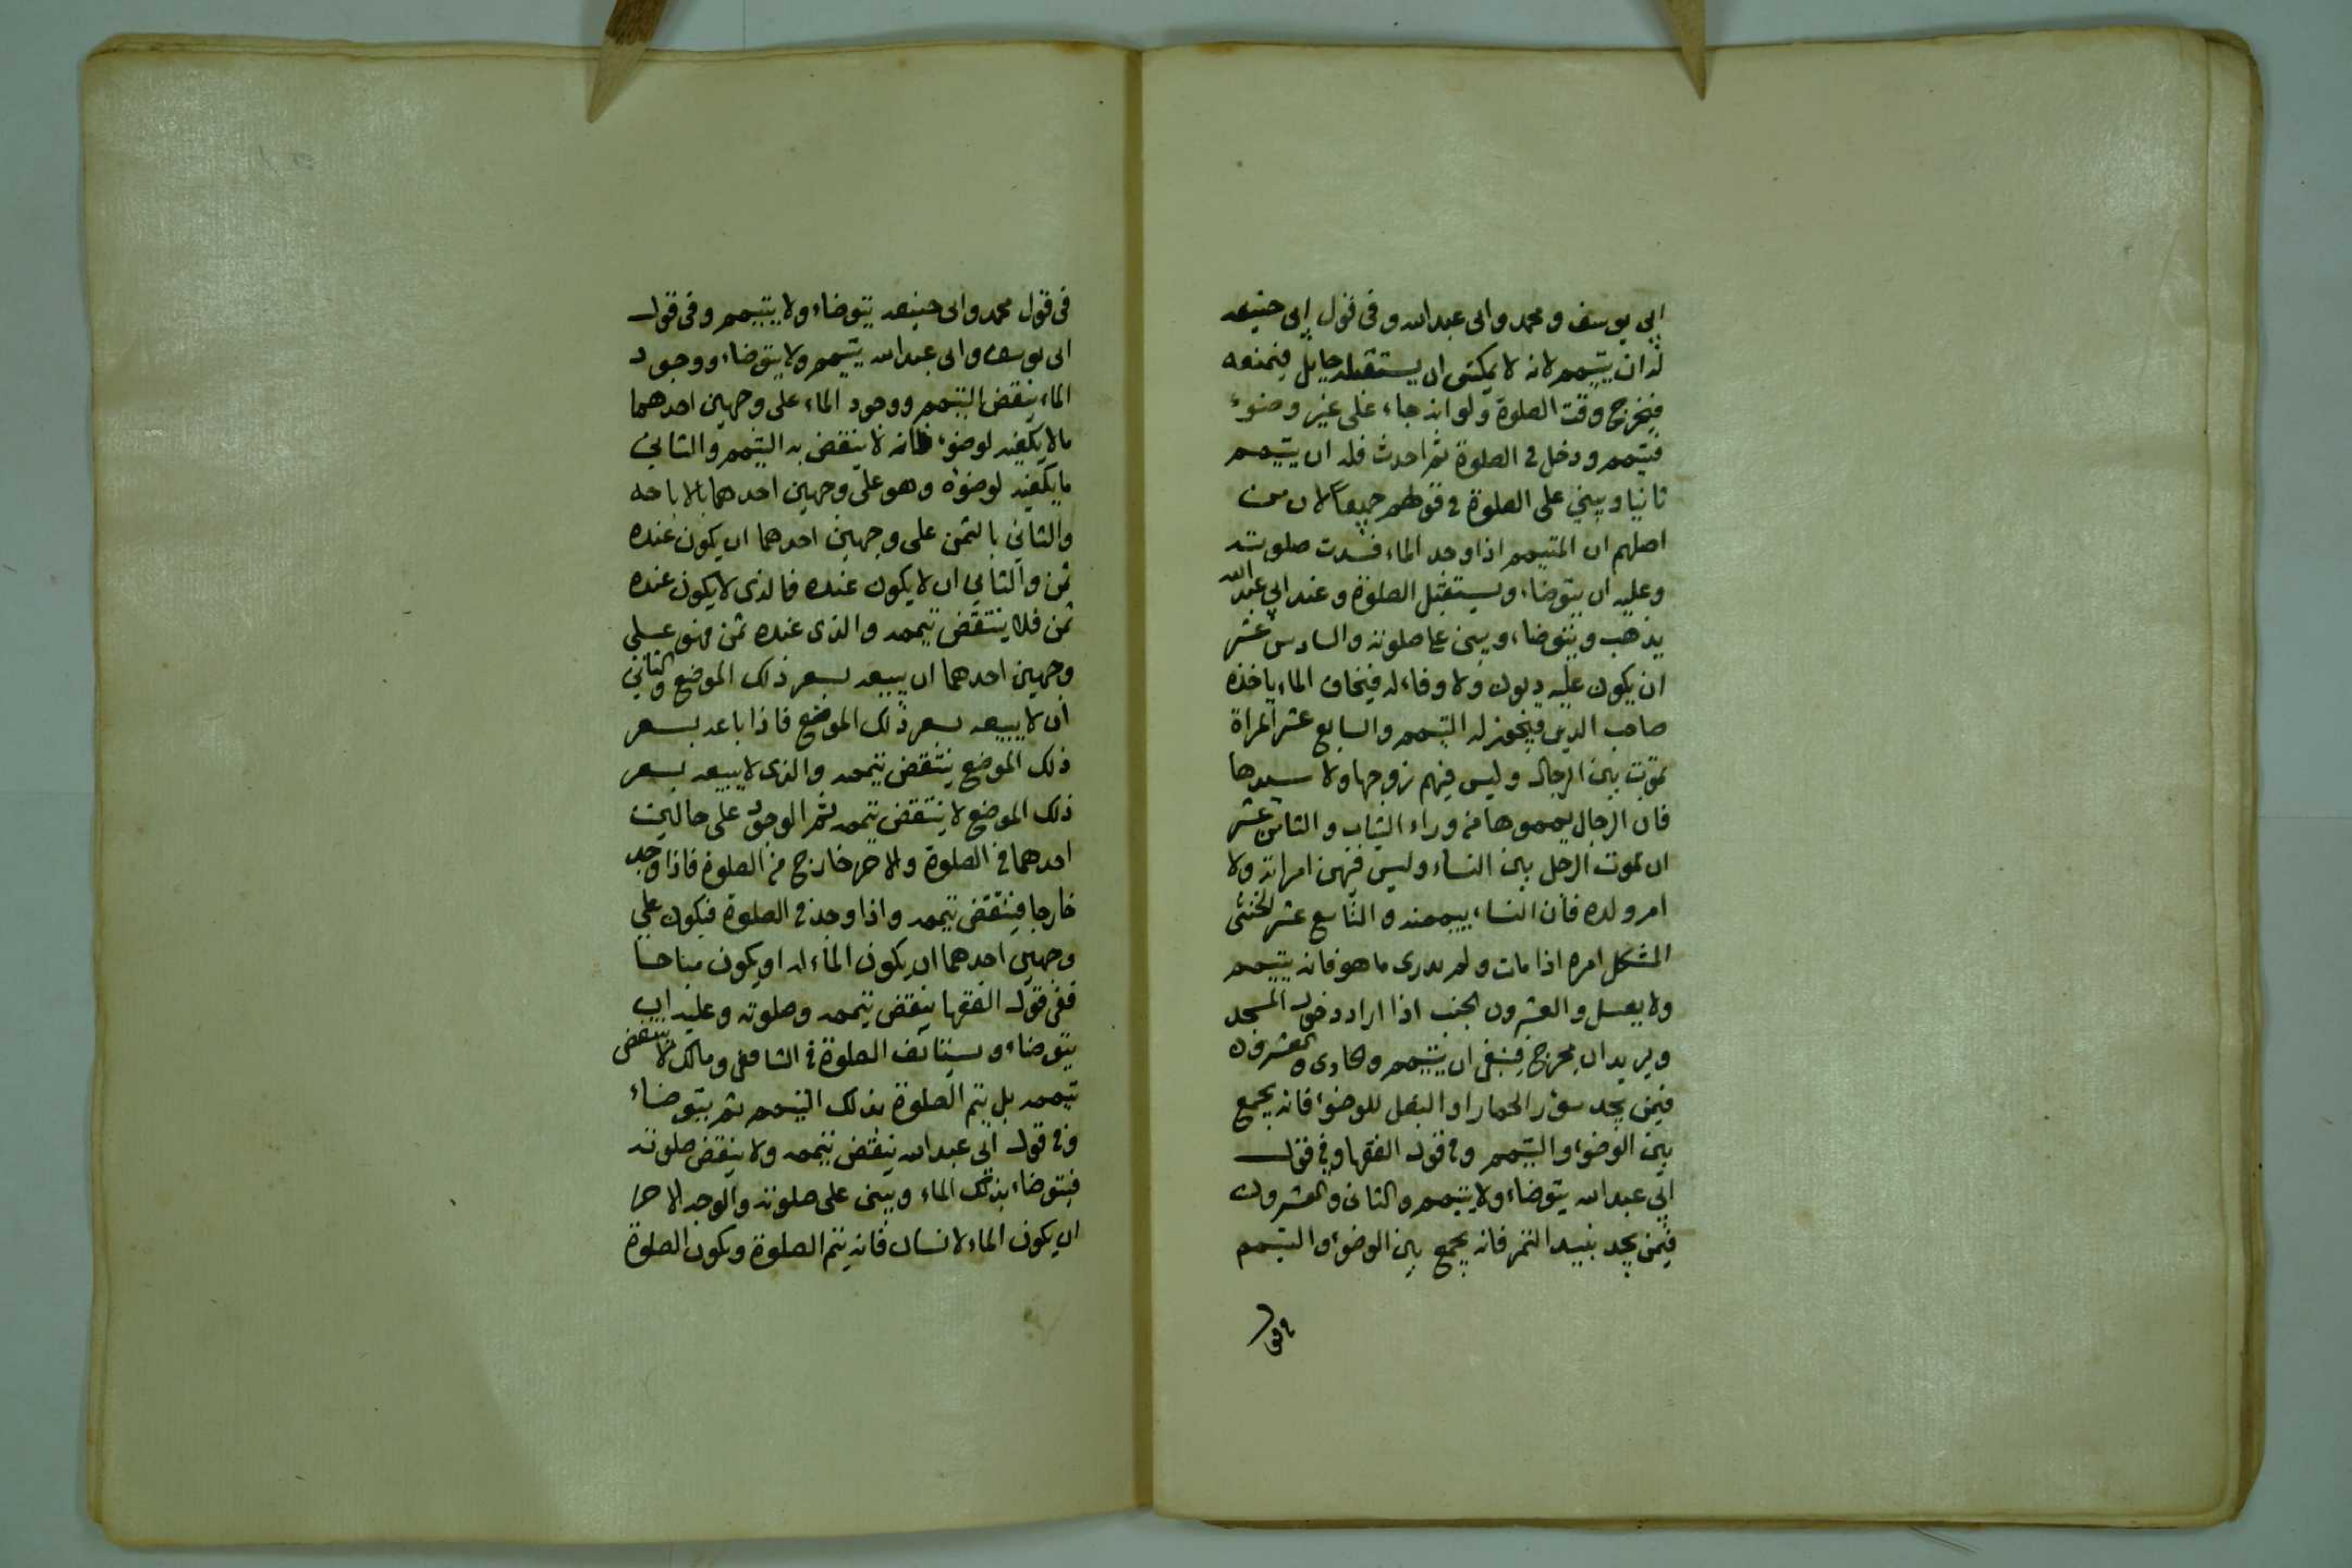 ابي يوسف ومحمد وابى عبدالله وفى قول ابى حنيفه
له ان يتيمم لانه لا يمكنى ان يستقبله حايل فيمنعه
فيخرج وقت الصلوة ولو انه جاء على غير وضوء
فتيمم ودخل فى الصلوة ثم احدث فله ان يتيمم
ثانيا ويبني على الصلوة فى قولهم جميعا لان من
اصلهم ان المتيمم اذا وجد الماء فسدت صلوته
وعليه ان يتوضاء ويستقبل الصلوة وعند ابي عبدالله
يذهب ويتوضاء ويبنى على صلوته والسادس عشر
ان يكون عليه ديون ولا وفاء له فيخاف الماء ياخذه
صاحب الدين فيجوز له التيمم والسابع عشر المراة
تموت بين الرجال وليس فيهم زوجها ولا سيدها
فان الرجال يمموها من وراء الثياب والثامن عشر
ان تموت الرجل بين النساء وليس فيهن امراته ولا
ام ولده فان النساء ييممنه والتاسع عشر الخنثى
المشكل امره اذا مات ولم يدرى ما هو فانه يتيمم
ولا يغسل والعشرون الجنب اذا اراد دخول المسجد
ويريد ان يخرج فينبغى ان يتيمم والحادى والعشرون
فيمن يجد سؤر الحمار او البغل للوضوء فانه يجمع
بين الوضوء والتيمم وفى قول الفقها وفي قول
ابي عبدالله يتوضاء ولا يتيمم والثانى والعشرون
فيمن يجد بنبيد التمر فانه يجمع بين الوضوء والتيمم
وفى
فى قول محمد وابى حنيفه يتوضاء ولا يتيمم وفى قول
ابى يوسف وابى عبدالله يتيمم ولا يتوضاء ووجود
الماء ينقض التيمم ووجود الماء على وجهين احدهما
ما لا يكفيه لوضوء فانه لا ينقض به التيمم والثاني
ما يكفيه لوضوه وهو على وجهين احدهما بالاباحه
والثاني بالثمن على وجهين احدهما ان يكون عنده
ثمن والثاني ان لا يكون عنده فالذى لا يكون عنده
ثمن فلا ينتقض تيممه والذى عنده ثمن فهو على
وجهين احدهما ان يبيعه بسعر ذلك الموضع والثاني
ان لا يبيعه بسعر ذلك الموضع فاذا باعه بسعر
ذلك الموضع ينتقض تيممه والذى لا يبيعه بسعر
ذلك الموضع لا ينتقض تيممه ثم الوجود على حالين
احدهما فى الصلوة والاخر خارج من الصلوة فاذا وجد
خارجا فينتقض تيممه واذا وجد فى الصلوة فيكون على
وجهين احدهما ان يكون الماء له او يكون مباحا
ففى قول الفقها ينقض تيممه وصلوته وعليه ان
يتوضاء ويستانف الصلوة فى الشافعى ومالك لا ينتقض
تيممه بل يتم الصلوة بذلك التيمم ثم يتوضاء
وفى قول ابى عبدالله ينقض تيممه ولا ينقض صلوته
فيتوضاء بذلك الماء ويبنى على صلوته والوجه الاخر
ان يكون الماء لانسان فانه يتم الصلوة ويكون الصلوة